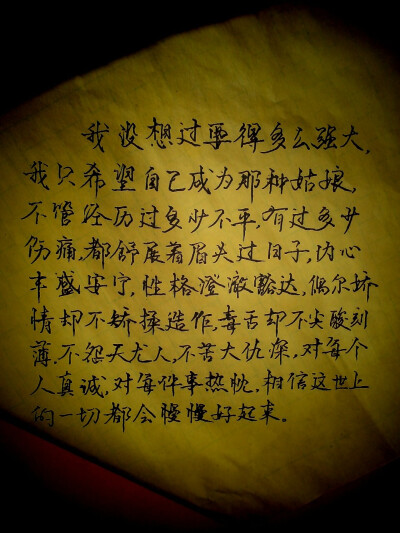 我没想过要得多么强大,
我只希望自己成为那种姑娘,
不管经历过多少不平,有过多少
伤痛,都舒展着眉头过日子,内心
丰盛安宁,性格澄澈豁达,偶尔矫
情却不矫揉造作,毒舌却不尖酸刻
薄,不怨天尤人,不苦大仇深,对每个
人真诚,对每件事热忱,相信这世上
的一切都会慢慢好起来。